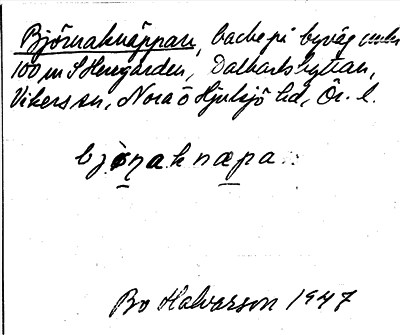 Björnaknäppan, backe på byväg under
100 m S Herrgården, Dalkarlshyttan,
Vikers sn, Nora o Hjulsjö hd, Ör. l.
bjönaknæpan
Bo Halvarson 1947